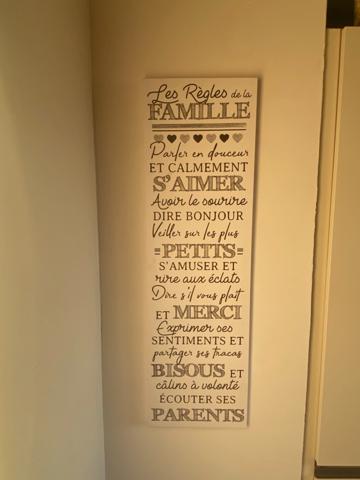 Les Règles de la
FAMILLE
Parler en douceur
ET CALMEMENT
S'AIMER
Avoir le sourire
DIRE BONJOUR
Veiller sur les plus
PETITS
S'AMUSER ET
rire aux éclats
Dire s'il vous plait
ET MERCI
Exprimer ses
SENTIMENTS ET
partager ses tracas
BISOUS ET
câlins à volonté
ÉCOUTER SES
PARENTS